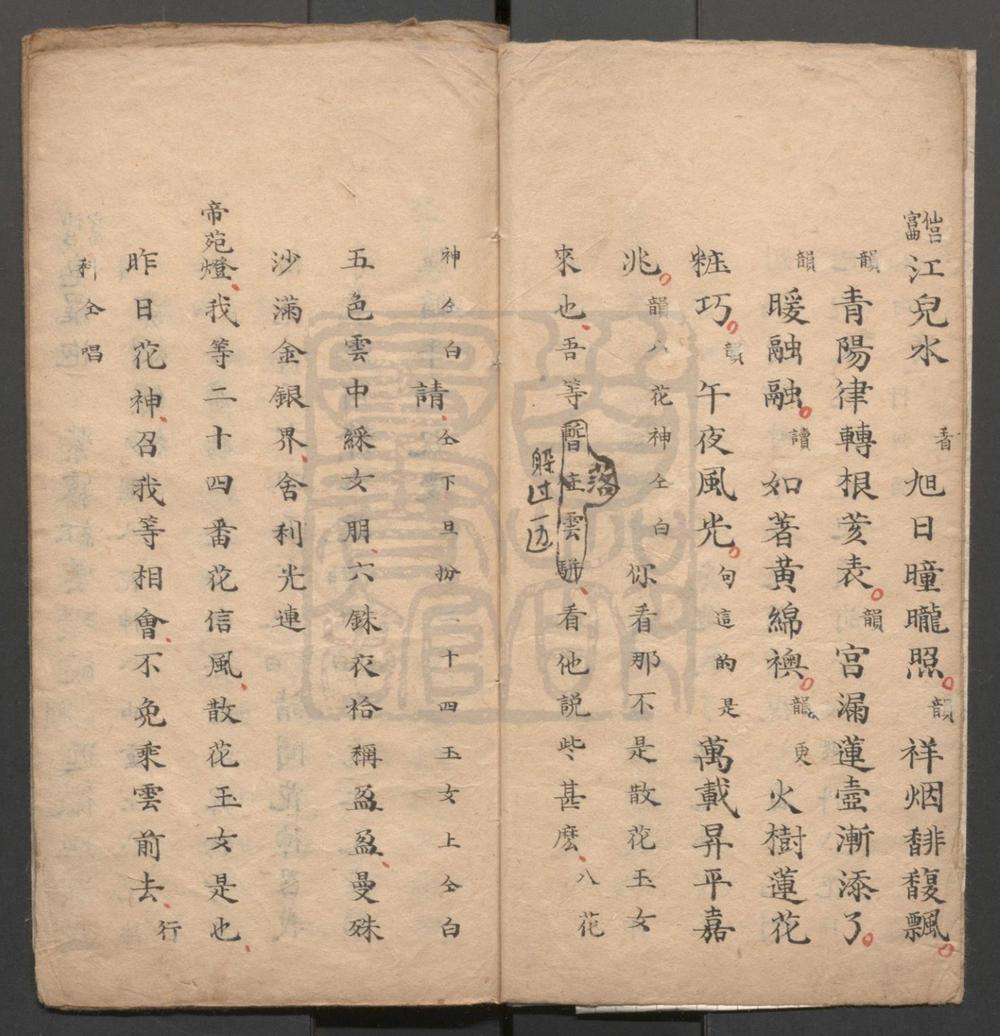 仙呂宮 江兒水 看 旭日曈曨照 韻 祥烟馡馥飄
韻 青陽律轉根荄表 韻 宮漏蓮壺漸添了
韻 暖融融 讀 如著黃綿襖 韻 更 火樹蓮花
粧巧 韻 午夜風光 句 這的是 萬載昇平嘉
兆 韻 八花神仝白 你看那不是散花玉女
來也吾等暫住雲駢看他説些甚麼 八花
落
躲过一边
神仝白 請 仝下旦扮二十四玉女上仝白
五色雲中綵女朋六銖衣袷稱盈盈曼殊
沙滿金銀界舍利光連
帝苑燈我等二十四番花信風散花玉女是也
昨日花神召我等相會不免乘雲前去 行
科仝唱